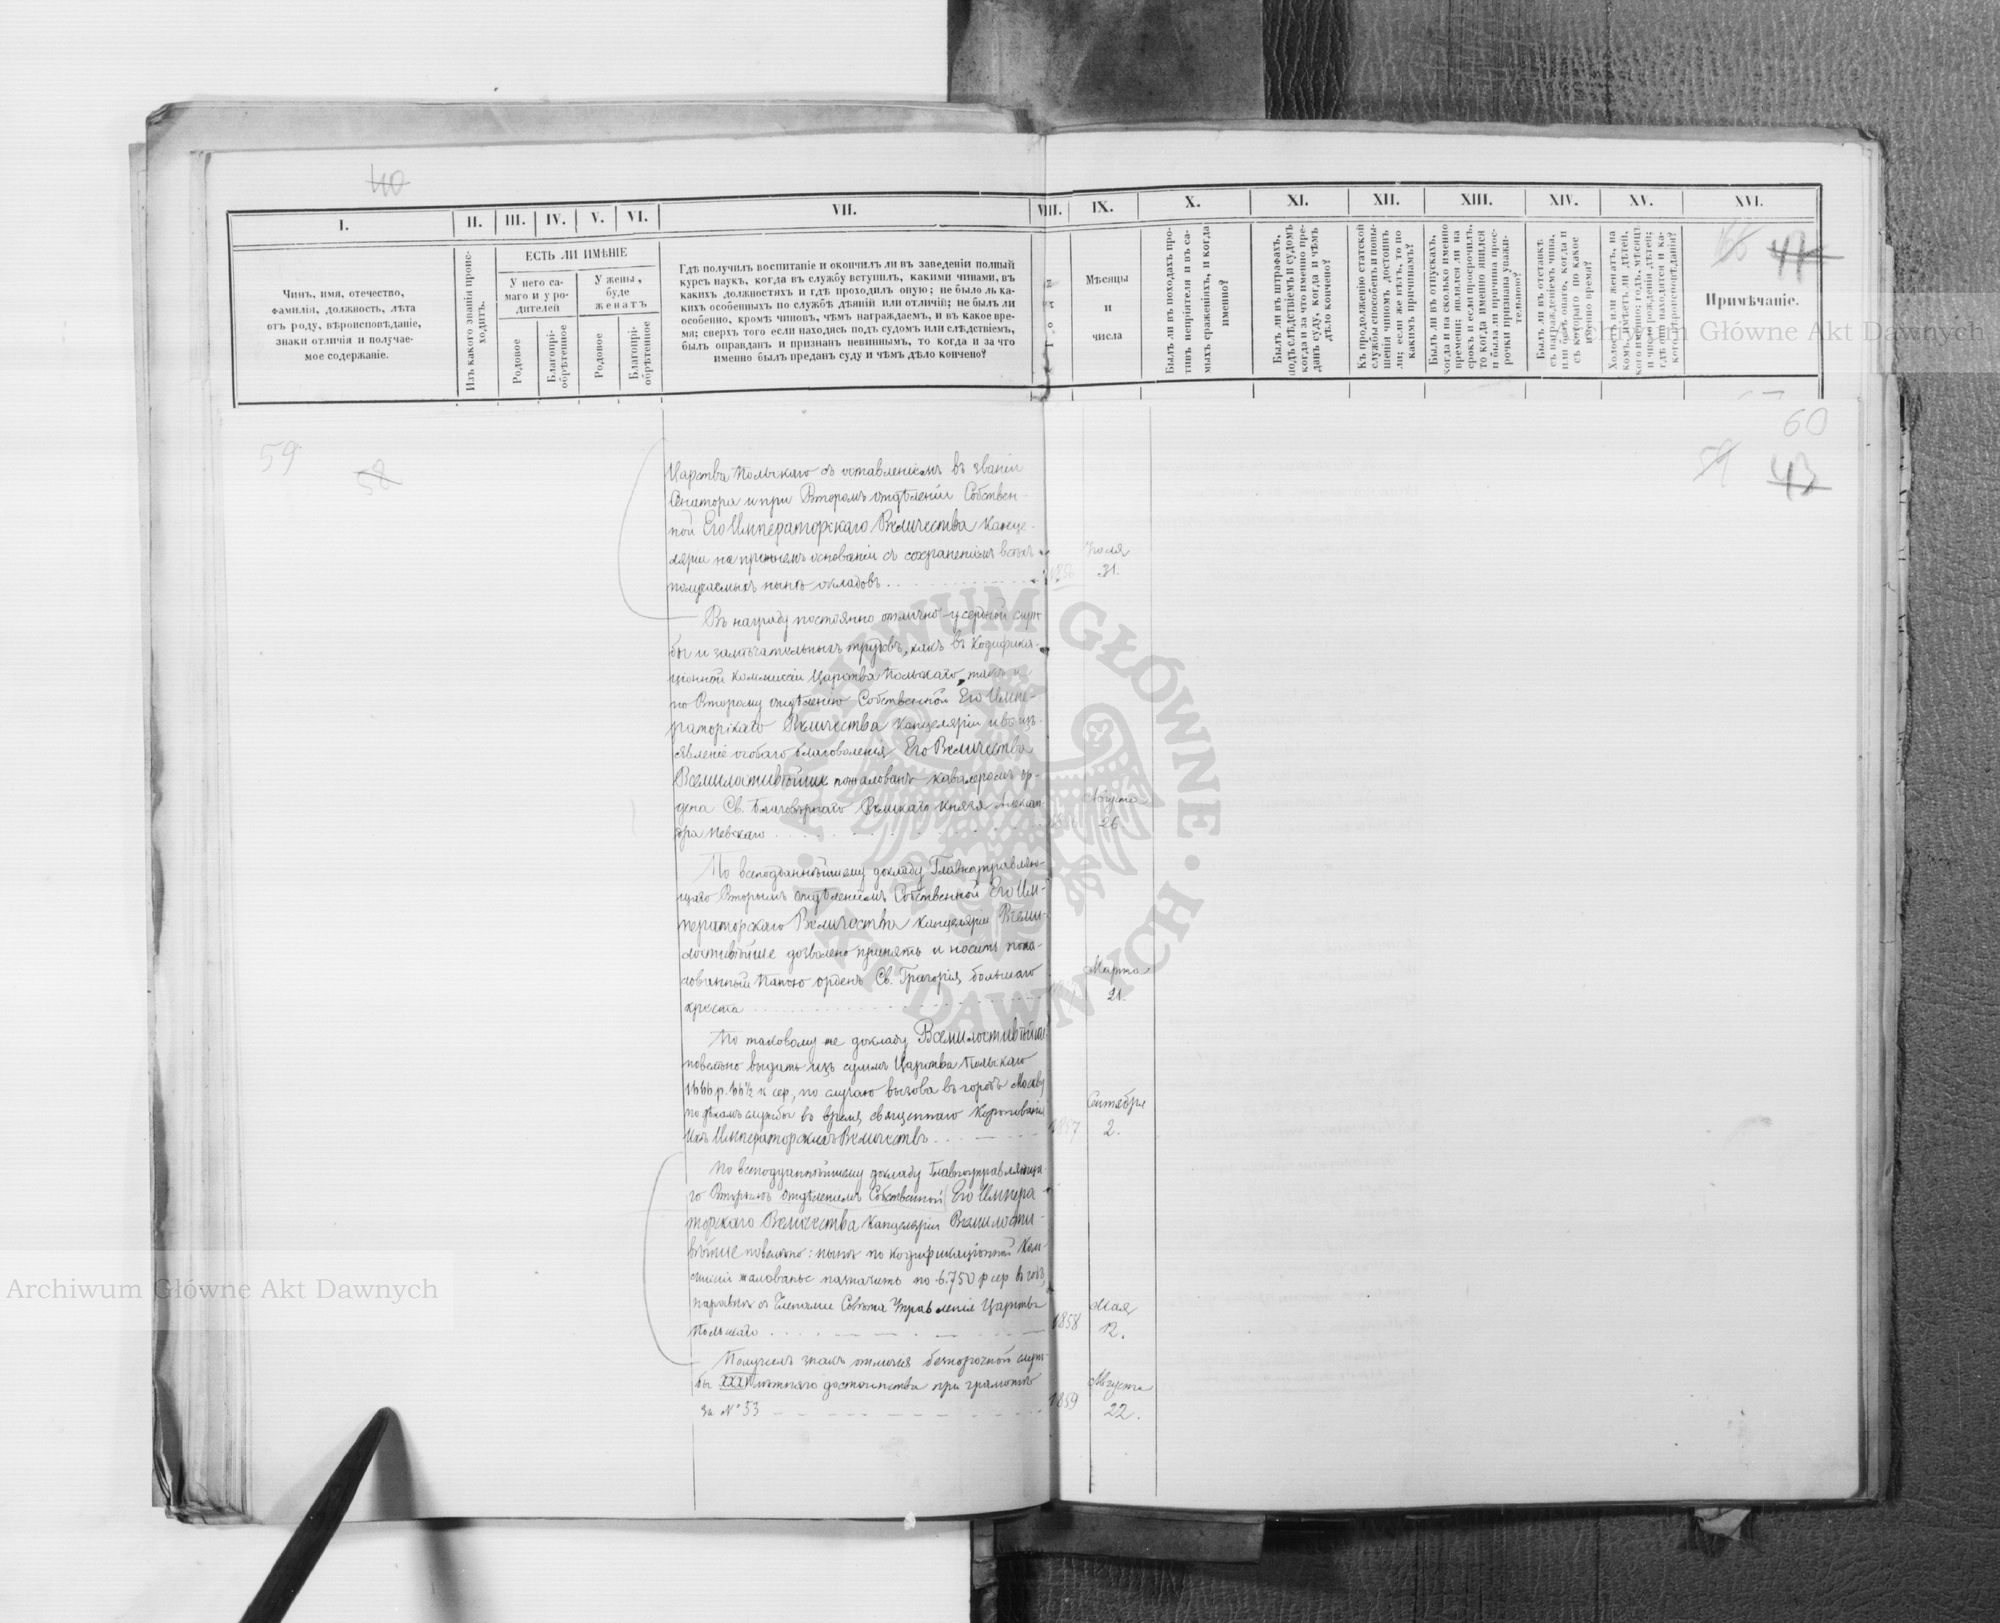 40
I.
II.
III.
IV.
V.
VI.
VII.
VIII.
IX.
X.
XI.
XII.
XIII.
XIV.
XV.
XVI.
Чинъ, имя, отечество,
фамилія, должность, лѣта
отъ роду, вѣроисповѣданіе,
знаки отличія и получае-
мое содержаніе.
Изъ какого званія проис-
ходитъ.
ЕСТЬ ЛИ ИМѢНІЕ
У него са-
маго и у ро-
дителей
У жены,
буде
женатъ
Родовое
Благопрі-
обрѣтенное
Родовое
Благопрі-
обрѣтенное
Гдѣ получилъ воспитаніе и окончилъ ли въ заведеніи полный
курсъ наукъ, когда въ службу вступилъ, какими чинами, въ
какихъ должностяхъ и гдѣ проходилъ оную; не было ль ка-
кихъ особенныхъ по службѣ дѣяній или отличій; не былъ ли
особенно, кромѣ чиновъ, чѣмъ награждаемъ, и въ какое вре-
мя; сверхъ того если находясь подъ судомъ или слѣдствіемъ,
былъ оправданъ и признанъ невиннымъ, то когда и за что
именно былъ преданъ суду и чѣмъ дѣло кончено?
Мѣсяцы
и
числа
Былъ ли въ походахъ про-
тивъ непріятеля и въ са-
мыхъ сраженіяхъ, и когда
именно?
Былъ ли въ штрафахъ,
подъ слѣдствіемъ и судомъ
когда и за что именно пре-
данъ суду, когда и чѣмъ
дѣло кончено?
Къ продолженію статской
службы способенъ и повы-
шенія чиномъ достоинъ
ли; если же нѣтъ, то по
какимъ причинамъ?
Былъ ли въ отпускахъ,
когда и на сколько именно
времени; являлся ли на
срокъ и если просрочилъ,
то когда именно явился
и была ли причина прос-
рочки признана уважи-
тельною?
Былъ ли въ отставкѣ
съ награжденіемъ чина,
или безъ онаго, когда и
съ котораго по какое
именно время?
Холостъ или женатъ, на
комъ, имѣетъ ли дѣтей,
кого именно; годъ, мѣсяцъ
и число рожденія дѣтей;
гдѣ они находятся и ка-
кого вѣроисповѣданія?
Примѣчаніе.
59
58
60
43
Царства Польскаго съ оставленіемъ въ званіи
Сенатора и при Второмъ отдѣленіи Собствен-
ной Его Императорскаго Величества Канце-
ляріи на прежнемъ основаніи съ сохраненіемъ всѣхъ
получаемыхъ нынѣ окладовъ
Іюля
31.
Въ награду постоянно отлично-усердной служ
бы и замѣчательныхъ трудовъ, какъ въ Кодифика-
ціонной Коммисіи Царства Польскаго, такъ и
по Второму отдѣленію Собственной Его Импе-
раторскаго Величества Канцеляріи и во изъ-
явленіе особаго благоволенія Его Величества
Всемилостивѣйше пожалованъ кавалеромъ ор-
дена Св. Благовѣрнаго Великаго Князя Алексан
дра Невскаго
Августа
26.
По всеподданнѣйшему докладу Главноуправляю-
щаго Вторымъ отдѣленіемъ Собственной Его Им-
ператорскаго Величества Канцеляріи Всеми-
лостивѣйше дозволено принять и носить пожа-
лованный Папою орденъ Св. Григорія большаго
креста
Марта
21.
По таковому же докладу Всемилостивѣйше
повелѣно выдать изъ суммъ Царства Польскаго
1666 р. 66½ к сер, по случаю вызова въ городъ Москву
по дѣламъ службы въ время священнаго Коронованія
Ихъ Императорскихъ Величествъ
1857
Сентября
2.
По всеподданнѣйшему докладу Главноуправляюща-
го Вторымъ отдѣленіемъ Собственной Его Импера-
торскаго Величества Канцеляріи Всемилости-
вѣйше повелѣно: нынѣ по кодификаціонной Ком-
мисіи жалованье назначить по 6.750 р сер въ годъ,
наравнѣ съ Членами Совѣта Управленія Царства
Польскаго
1858
Мая
12.
Получилъ знакъ отличія безпорочной служ-
бы XXXV лѣтняго достоинства при грамотѣ
за № 53
1859
Августа
22.
ARCHIWUM GŁÓWNE AKT DAWNYCH
Archiwum Główne Akt Dawnych
Archiwum Główne Akt Dawnych